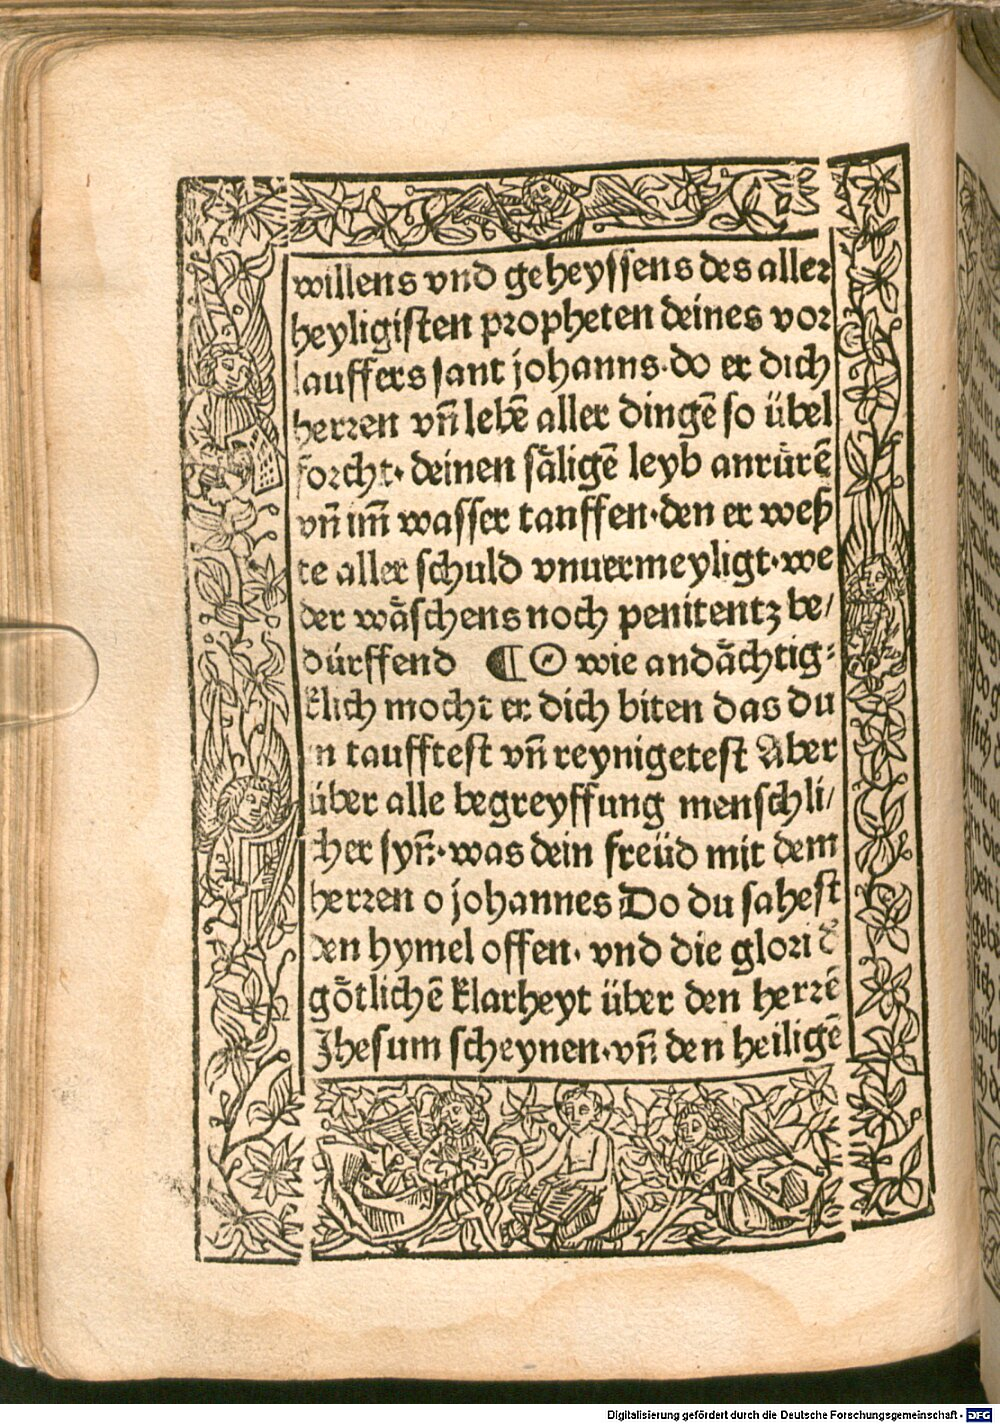 willens vnd geheyssens des aller
heyligisten propheten deines vor
lauffers sant johanns·do er dich
herren vn̄ lebē aller dingē so übel
forcht· deinen sāligē leyb anrůrē
vn̄ im̄ wasser tauffen·den er weß
te aller schuld vnuermeyligt·we
der wāschens noch penitentz be/
dürffend ¶ O wie andāchtig⸗
klich mocht er dich biten das du
in taufftest vn̄ reynigetest Aber
über alle begreyffung menschli/
cher syn̄·was dein freüd mit dem
herren o johannes Do du sahest
den hymel offen· vnd die glori đ
gōtlichē klarheyt über den herrē
Jhesum scheynen·vn̄ den heiligē
Digitalisierung gefördert durch die Deutsche Forschungsgemeinschaft - DFG